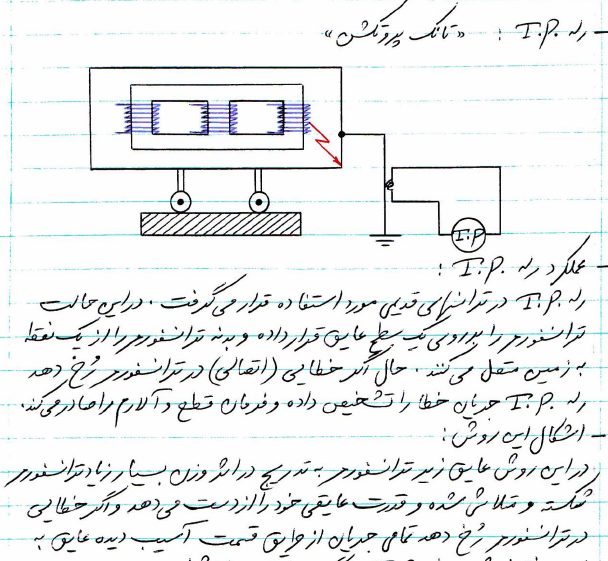 - رله T.P. : «تانک پروتکشن»
T.P
- عملکرد رله T.P. :
رله T.P. در ترانسهای قدیمی مورد استفاده قرار می گرفت . در این حالت
ترانسفورمر را بر روی یک سطح عایق قرار داده و بدنه ترانسفورمر را از یک نقطه
به زمین متصل می کنند . حال اگر خطایی (اتصالی) در ترانسفورمر رخ دهد
رله T.P. جریان خطا را تشخیص داده و فرمان قطع و آلارم را صادر می کند.
- اشکال این روش :
در این روش عایق زیر ترانسفورمر به تدریج در اثر وزن بسیار زیاد ترانسفورمر
شکسته و متلاشی شده و قدرت عایقی خود را از دست می دهد و اگر خطایی
در ترانسفورمر رخ دهد تمامی جریان از طریق قسمت آسیب دیده عایق به